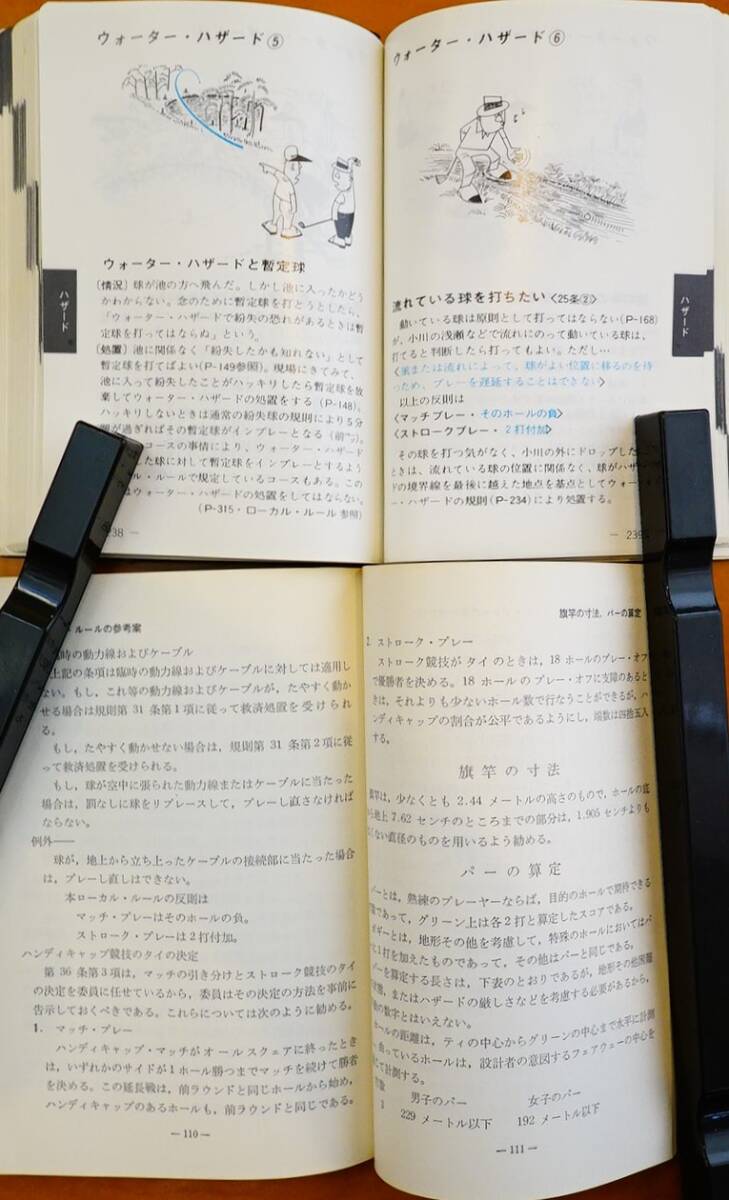 ウォーター・ハザード⑤
ハザード
ウォーター・ハザードと暫定球
〔情況〕球が池の方へ飛んだ。しかし池に入ったかどう
かわからない。念のために暫定球を打とうとしたら、
「ウォーター・ハザードで紛失の恐れがあるときは暫
定球を打ってはならぬ」という。
〔処置〕池に関係なく「紛失したかも知れない」として
暫定球を打てばよい(P-149参照)。現場にきてみて、
池に入って紛失したことがハッキリしたら暫定球を放
棄してウォーター・ハザードの処置をする(P-148)。
ハッキリしないときは通常の紛失球の規則により5分
間が過ぎればその暫定球がインプレーとなる(前
コースの事情により、ウォーター・ハザード
した球に対して暫定球をインプレーとするよう
ル・ルールで規定しているコースもある。この
はウォーター・ハザードの処置をしてはならない。
(P-315・ローカル・ルール参照)
38 —
ウォーター・ハザード⑥
ハザード
流れている球を打ちたい〈25条②〉
動いている球は原則として打ってはならない(P-168)
が、小川の浅瀬などで流れにのって動いている球は、
打てると判断したら打ってもよい。ただし…
〈風または流れによって、球がよい位置に移るのを待
ったため、プレーを遅延することはできない〉
以上の反則は
〈マッチプレー・そのホールの負〉
〈ストロークプレー・2打付加〉
その球を打つ気がなく、小川の外にドロップした
ときは、流れている球の位置に関係なく、球がハザー
の境界線を最後に越えた地点を基点としてウォー
・ハザードの規則(P-234)により処置する。
— 239
ルールの参考案
時の動力線およびケーブル
上記の条項は臨時の動力線およびケーブルに対しては適用し
ない。もし、これ等の動力線およびケーブルが、たやすく動か
せる場合は規則第 31 条第1項に従って救済処置を受けられ
る。
もし、たやすく動かせない場合は、規則第 31 条第2項に従
って救済処置を受けられる。
もし、球が空中に張られた動力線またはケーブルに当たった
場合は、罰なしに球をリプレースして、プレーし直さなければ
ならない。
例外——
球が、地上から立ち上ったケーブルの接続部に当たった場合
は、プレーし直しはできない。
本ローカル・ルールの反則は
マッチ・プレーはそのホールの負。
ストローク・プレーは2打付加。
ハンディキャップ競技のタイの決定
第 36 条第3項は、マッチの引き分けとストローク競技のタイ
の決定を委員に任せているから、委員はその決定の方法を事前に
告示しておくべきである。これらについては次のように勧める。
1. マッチ・プレー
ハンディキャップ・マッチがオールスクェアに終ったとき
は、いずれかのサイドが1ホール勝つまでマッチを続けて勝者
を決める。この延長戦は、前ラウンドと同じホールから始め、
ハンディキャップのあるホールも、前ラウンドと同じである。
—110—
旗竿の寸法、パーの算定
2. ストローク・プレー
ストローク競技がタイのときは、18 ホールのプレー・オフ
で優勝者を決める。18 ホールのプレー・オフに支障のあると
きは、それよりも少ないホール数で行なうことができるが、ハ
ンディキャップの割合が公平であるようにし、端数は四捨五入
する。
旗竿の寸法
旗竿は、少なくとも 2.44 メートルの高さのもので、ホールの底
から地上 7.62 センチのところまでの部分は、1.905 センチよりも
くない直径のものを用いるよう勧める。
パーの算定
パーとは、熟練のプレーヤーならば、目的のホールで期待できる
であって、グリーン上は各2打と算定したスコアである。
ボギーとは、地形その他を考慮して、特殊のホールにおいてはパー
に1打を加えたものであって、その他はパーと同じである。
パーを算定する長さは、下表のとおりであるが、地形その他困難
状態、またはハザードの厳しさなどを考慮する必要があるから、
の数字とはいえない。
ホールの距離は、ティの中心からグリーンの中心まで水平に計測
曲っているホールは、設計者の意図するフェアウェーの中心を
て計測する。
男子のパー 女子のパー
3 229 メートル以下 192 メートル以下
—111—